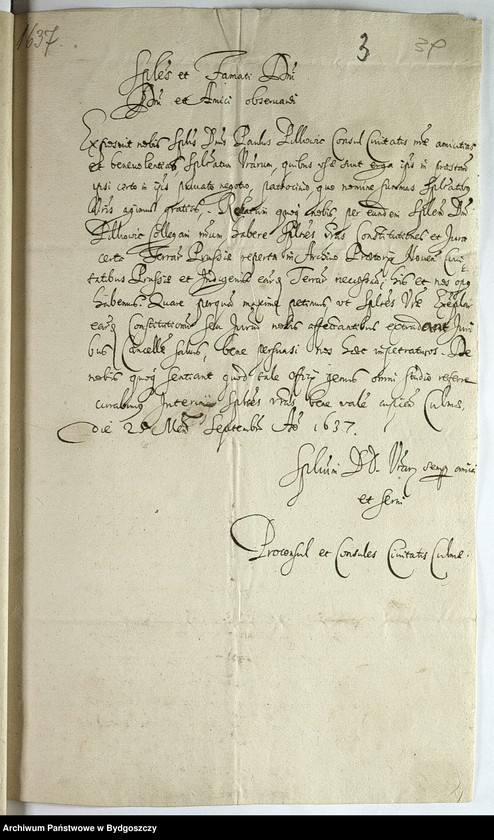 1637.
3
Splēs et Famati Dnī
Dnī et Amici observandi
Exposuit nobis Splis Dnus Paulus Pillovic Consul Civitatis nrē amicitias
et benevolentias Spliatum Vrarum, quibus usus sunt erga ipsum in praesenti
ipsi certo in ipsius privato negotio, patrocinio, quo nomine summas Splitatibus
Vris agimus gratias. Relatum quoque nobis per eundem Splem Dnum
Pillovic Collegam nrum habere Splites Vras Constitutiones et Jura
certa Terrarum Prussiae reperta in Archivo Praetorij Noven Civi
tatibus Prussiae et Indigenis earum Terrarum necessaria; his et nos opus
habemus. Quare perquam maxime petimus ut Splites Vrae Exempla
earum Constitutionum seu Jurium nobis affectantibus extradent Juri
bus Cancellae salvis, bene persuasi nos haec impetraturos. De
nobis quoque sentiant quod tale officij genus omni studio referre
curabimus. Interim Splites Vras bene valere cupimus Culmae,
die 25 Mens Septembris Ao 1637.
Splium DD. Vrarum semper amici
et servi
Proconsul et Consules Civitatis Culmen.
Archiwum Państwowe w Bydgoszczy